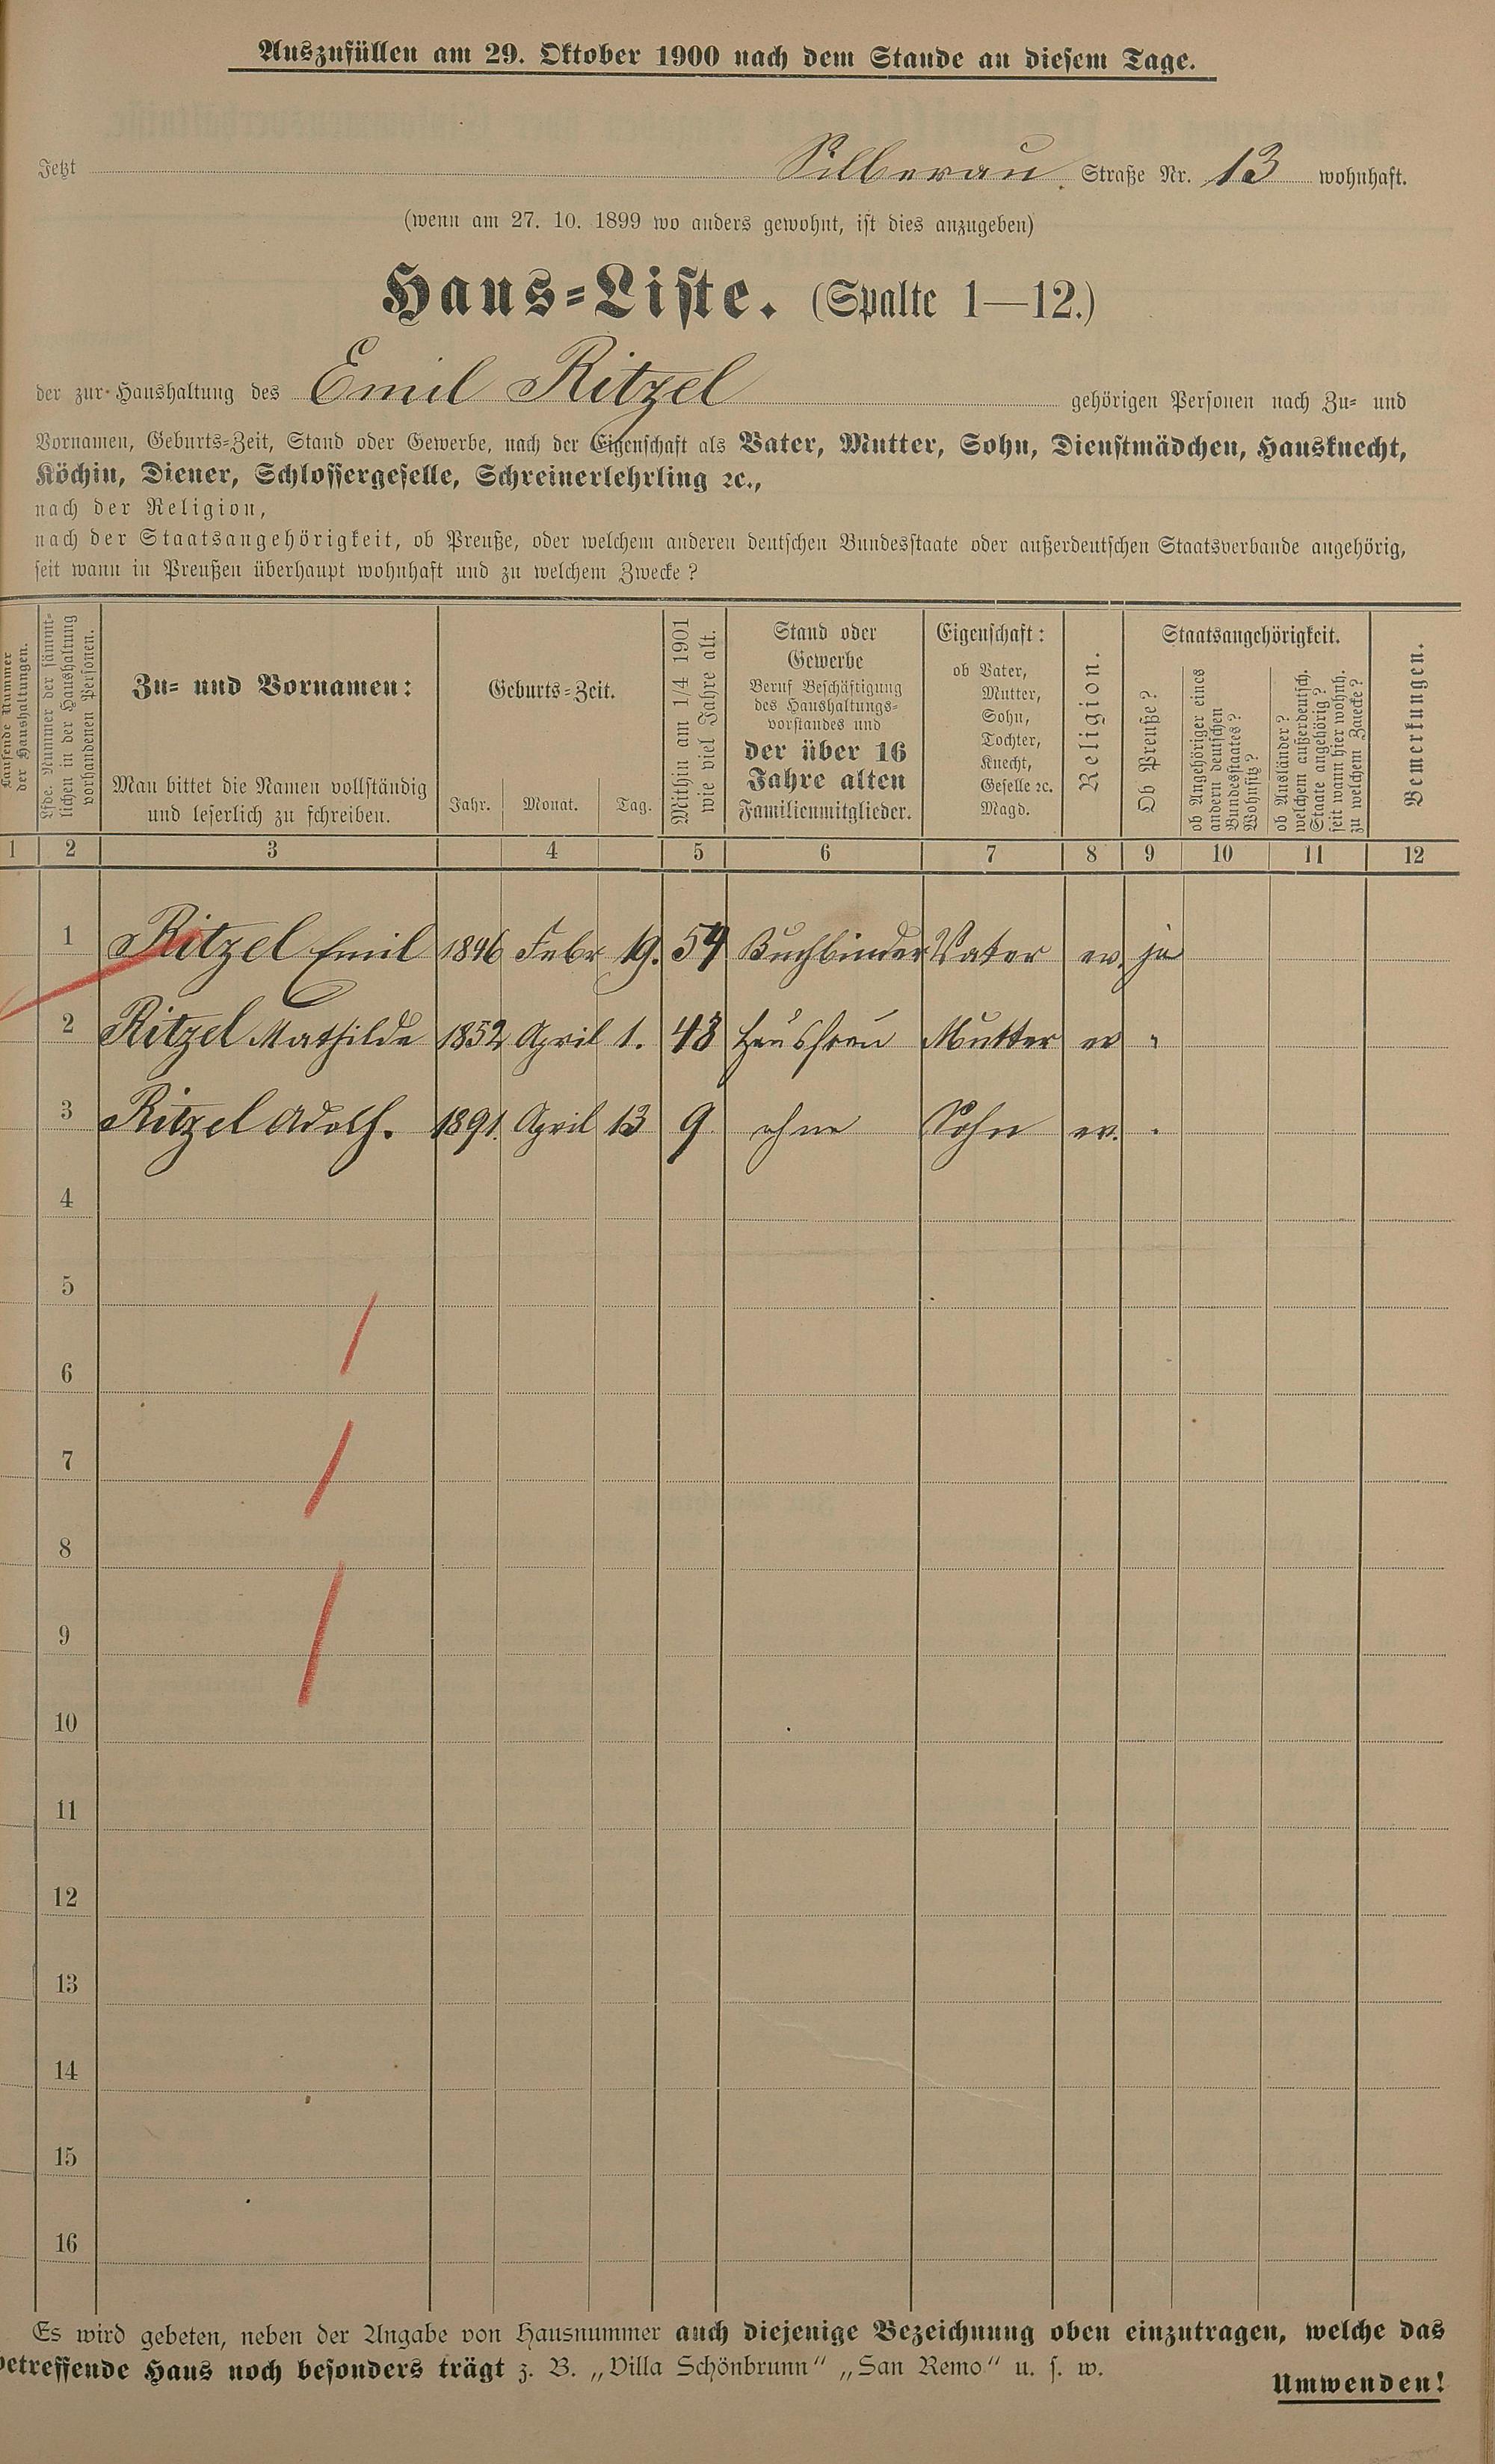 Auszufüllen am 29. Oktober 1900 nach dem Stande an diesem Tage.
Jetzt Silberau Straße Nr. 13 wohnhaft.
(wenn am 27. 10. 1899 wo anders gewohnt, ist dies anzugeben)
Haus=Liste. (Spalte 1—12.)
der zur Haushaltung des Emil Ritzel gehörigen Personen nach Zu= und
Vornamen, Geburts=Zeit, Stand oder Gewerbe, nach der Eigenschaft als Vater, Mutter, Sohn, Dienstmädchen, Hausknecht,
Köchin, Diener, Schlossergeselle, Schreinerlehrling ꝛc.,
nach der Religion,
nach der Staatsangehörigkeit, ob Preuße, oder welchem anderen deutschen Bundesstaate oder außerdeutschen Staatsverbande angehörig,
seit wann in Preußen überhaupt wohnhaft und zu welchem Zwecke?
Laufende Nummer
der Haushaltungen.
Lfde. Nummer der sämmt=
lichen in der Haushaltung
vorhandenen Personen.
Zu= und Vornamen:
Man bittet die Namen vollständig
und leserlich zu schreiben.
Geburts=Zeit.
Jahr. Monat. Tag.
Mithin am 1/4 1901
wie viel Jahre alt.
Stand oder
Gewerbe
Beruf Beschäftigung
des Haushaltungs=
vorstandes und
der über 16
Jahre alten
Familienmitglieder.
Eigenschaft:
ob Vater,
Mutter,
Sohn,
Tochter,
Knecht,
Geselle ꝛc.
Magd.
Religion.
Staatsangehörigkeit.
Ob Preuße?
ob Angehöriger eines
andern deutschen
Bundesstaates?
Wohnsitz?
ob Ausländer?
welchem außerdeutsch.
Staate angehörig?
seit wann hier wohnh.
zu welchem Zwecke?
Bemerkungen.
1 2 3 4 5 6 7 8 9 10 11 12
1 Ritzel Emil 1846 Febr 19. 54 Buchbinder Vater ev. ja
2 Ritzel Mathilde 1852 April 1. 48 Hausfrau Mutter ev "
3 Ritzel Adolf. 1891. April 13 9 ohne Sohn ev. "
4
5
6
7
8
9
10
11
12
13
14
15
16
Es wird gebeten, neben der Angabe von Hausnummer auch diejenige Bezeichnung oben einzutragen, welche das
betreffende Haus noch besonders trägt z. B. „Villa Schönbrunn" „San Remo" u. s. w.
Umwenden!